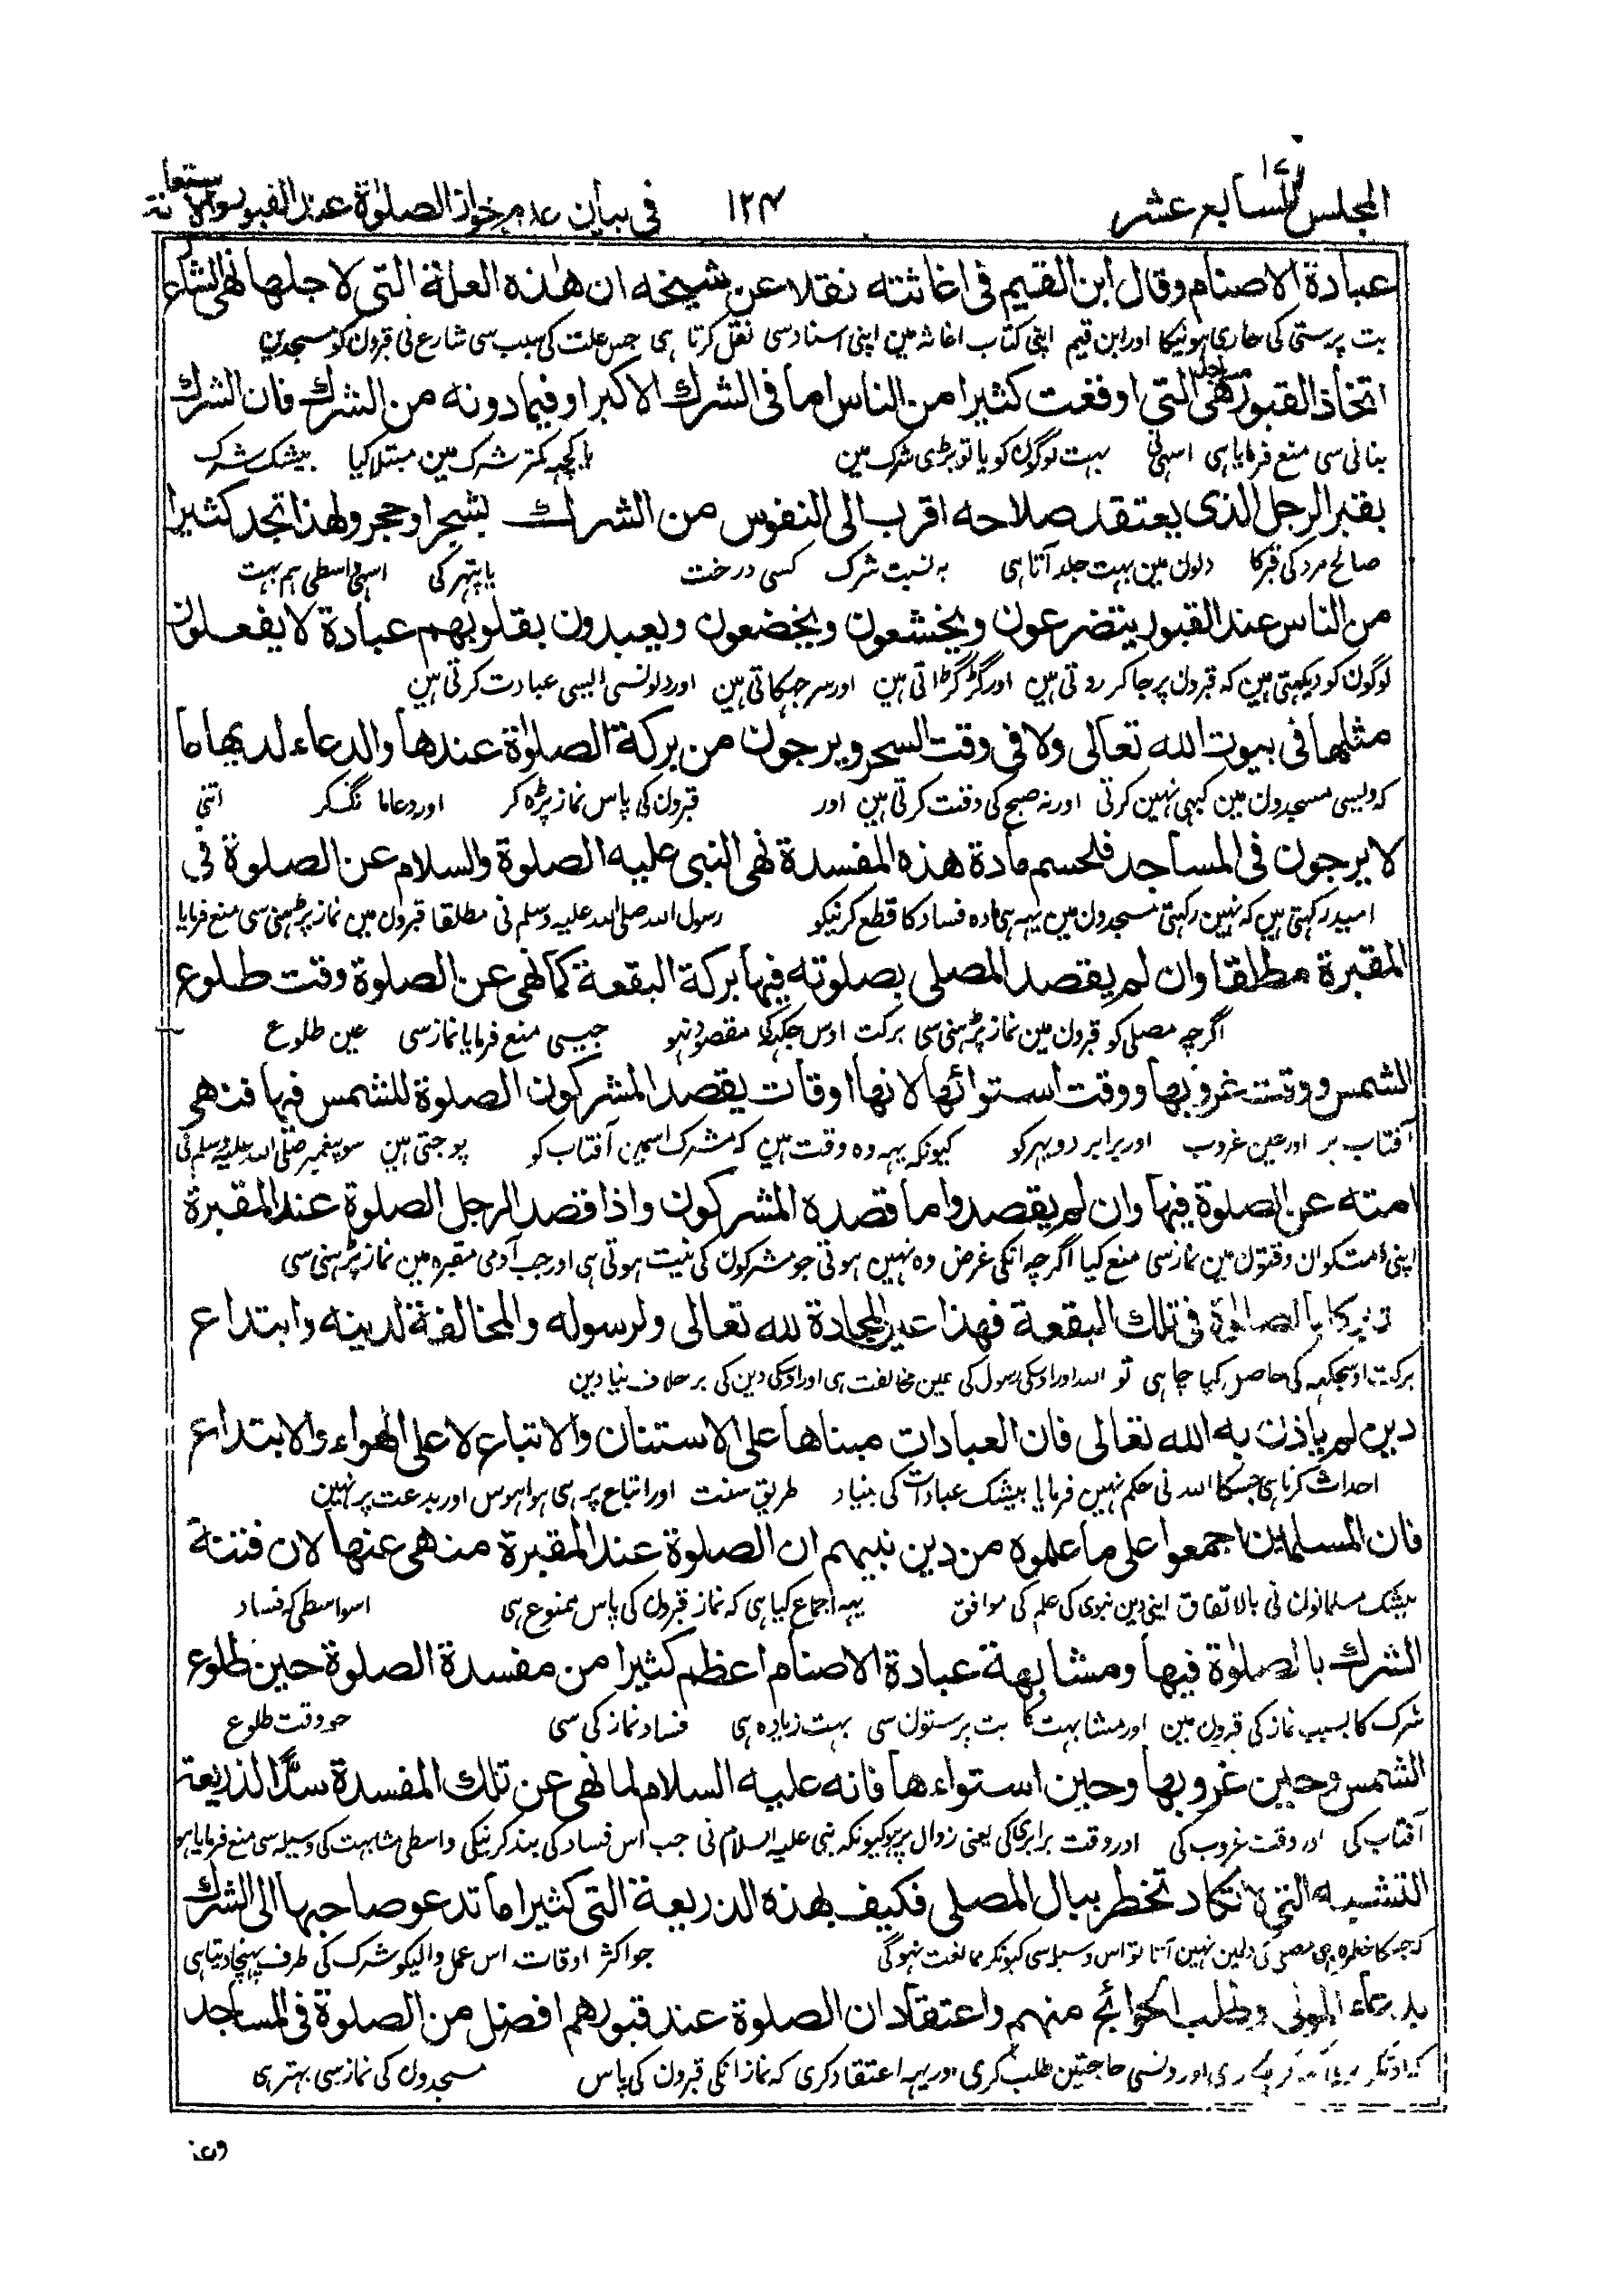 المجلس السابع عشر
١٢٤
في بيان عدم جواز الصلوٰة عند القبور والاستعانة
عبادة الاصنام وقال ابن القيم فى اغاثته نقلا عن شيخه ان هٰذه العلة التى لاجلها نهى الشارع
بت پرستی کی جاری ہونیکا اور ابن قیم اپنی کتاب اغاثہ مین اپنی استاد سی نقل کرتا ہی جس علت کی سبب سی شارع نی قبرون کو مسجدین
اتخاذ القبور مساجد هى التى اوقعت كثيرا من الناس اما فى الشرك الاكبر او فيما دونه من الشرك فان الشرك
بنانی سی منع فرمایا ہی اسہی نی بہت لوگون کو یا تو بڑی شرک مین یا کچہہ کمتر شرک مین مبتلا کیا بیشک شرک
بقبر الرجل الذى يعتقد صلاحه اقرب الى النفوس من الشرك بشجر او حجر ولهذا تجد كثيرا
صالح مرد کی قبر کا دلون مین بہت جلد آتا ہی بہ نسبت شرک کسی درخت یا پتہر کی اسی واسطی ہم بہت
من الناس عند القبور يتضرعون ويخشعون ويخضعون ويعبدون بقلوبهم عبادة لا يفعلون
لوگون کو دیکہتی ہین کہ قبرون پر جا کر روتی ہین اور گڑگڑاتی ہین اور سر جہکاتی ہین اور دلونسی ایسی عبادت کرتی ہین
مثلها فى بيوت الله تعالى ولا فى وقت السحر ويرجون من بركة الصلوٰة عندها والدعاء لديها ما
کہ ویسی مسجدون مین کبہی نہین کرتی اور نہ صبح کی وقت کرتی ہین اور قبرون کی پاس نماز پڑہ کر اور دعا مانگ کر اتنی
لا يرجون فى المساجد فلحسم مادة هذه المفسدة نهى النبى عليه الصلوة والسلام عن الصلوة فى
امید رکہتی ہین کہ نہین رکہتی مسجدون مین یہہ ہی مادہ فساد کا قطع کرنیکو رسول اللہ صلی اللہ علیہ وسلم نی مطلقا قبرون مین نماز پڑہنی سی منع فرمایا
المقبرة مطلقا وان لم يقصد المصلى بصلوته فيها بركة البقعة كما نهى عن الصلوة وقت طلوع
اگرچہ مصلی کو قبرون مین نماز پڑہنی سی برکت اوس جگہہ کی مقصود نہو جیسی منع فرمایا نماز سی عین طلوع
الشمس ووقت غروبها ووقت استوائها لانها اوقات يقصد المشركون الصلوة للشمس فيها فنهى
آفتاب پر اور عین غروب اور برابر دوپہر کو کیونکہ یہہ وہ وقت ہین کہ مشرک اسمین آفتاب کو پوجتی ہین سو پیغمبر صلی اللہ علیہ وسلم نی
امته عن الصلوة فيها وان لم يقصدوا ما قصده المشركون واذا قصد الرجل الصلوة عند المقبرة
اپنی امت کو ان وقتون مین نماز سی منع کیا اگرچہ انکی غرض وہ نہین ہوتی جو مشرکون کی نیت ہوتی ہی اور جب آدمی مقبرہ مین نماز پڑہنی سی
تبركا بالصلوٰة فى تلك البقعة فهذا عين المحادة لله تعالى ولرسوله والمخالفة لدينه وابتداع
برکت اوسجگہہ کی حاصل کیا چاہی تو اللہ اور اوسکی رسول کی عین مخالفت ہی اور اوسکی دین کی برخلاف نیا دین
دين لم يأذن به الله تعالى فان العبادات مبناها على الاستنان والاتباع لا على الهواء والابتداع
احداث کرنا ہی جسکا اللہ نی حکم نہین فرمایا بیشک عبادات کی بنیاد طریق سنت اور اتباع پر ہی ہوا ہوس اور بدعت پر نہین
فان المسلمين اجمعوا على ما علموه من دين نبيهم ان الصلوة عند المقبرة منهى عنها لان فتنة
بیشک مسلمانون نی بالاتفاق اپنی دین نبوی کی علم کی موافق یہہ اجماع کیا ہی کہ نماز قبرون کی پاس ممنوع ہی اسواسطی کہ فساد
الشرك بالصلوٰة فيها ومشابهة عبادة الاصنام اعظم كثيرا من مفسدة الصلوة حين طلوع
شرک کا بسبب نماز کی قبرون مین اور مشابہت کا بت پرستون سی بہت زیادہ ہی فساد نماز کی سی جو وقت طلوع
الشمس وحين غروبها وحين استواءها فانه عليه السلام لما نهى عن تلك المفسدة سدًّا لذريعة
آفتاب کی اور وقت غروب کی اور وقت برابری کی یعنی زوال پر ہو کیونکہ نبی علیہ السلام نی جب اس فساد کی بند کرنیکی واسطی مشابہت کی وسیلہ سی منع فرمایا ہو
التشبيه التى لا تكاد تخطر ببال المصلى فكيف بهذه الذريعة التى كثيرا ما تدعو صاحبها الى الشرك
کہ جسکا خطرہ ہی مصلی کی دلمین نہین آتا تو اس وسیلہ سی کیونکر ممانعت نہوگی جو اکثر اوقات اس عمل والیکو شرک کی طرف پہنچا دیتا ہی
بدعاء الموتى وطلب الحوائج منهم واعتقاد ان الصلوة عند قبورهم افضل من الصلوة فى المساجد
اور ونسی حاجتین طلب کری اور یہہ اعتقاد کری کہ نماز انکی قبرون کی پاس مسجدون کی نماز سی بہتر ہی